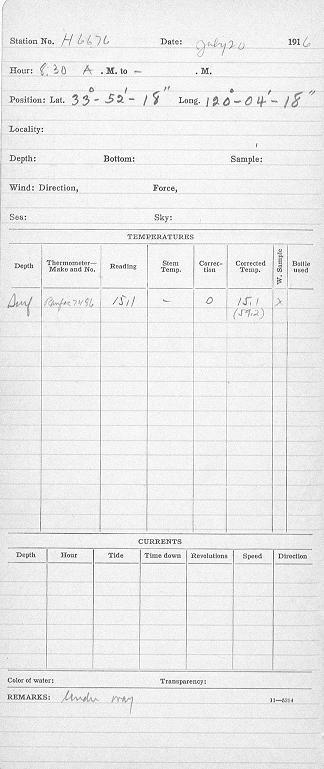 Station No. H 6676 Date: July 20 1916
Hour: 8.30 A .M. to – .M.
Position: Lat. 33°-52'-18" Long. 120°-04'-18"
Locality:
Depth: Bottom: Sample:
Wind: Direction, Force,
Sea: Sky:
TEMPERATURES
Depth Thermometer—Make and No. Reading Stem Temp. Correction Corrected Temp. W. Sample Bottle used
Surf 7496 15.1 – 0 15.1 x
(59.2)
CURRENTS
Depth Hour Tide Time down Revolutions Speed Direction
Color of water: Transparency:
REMARKS: Under way 11—6314